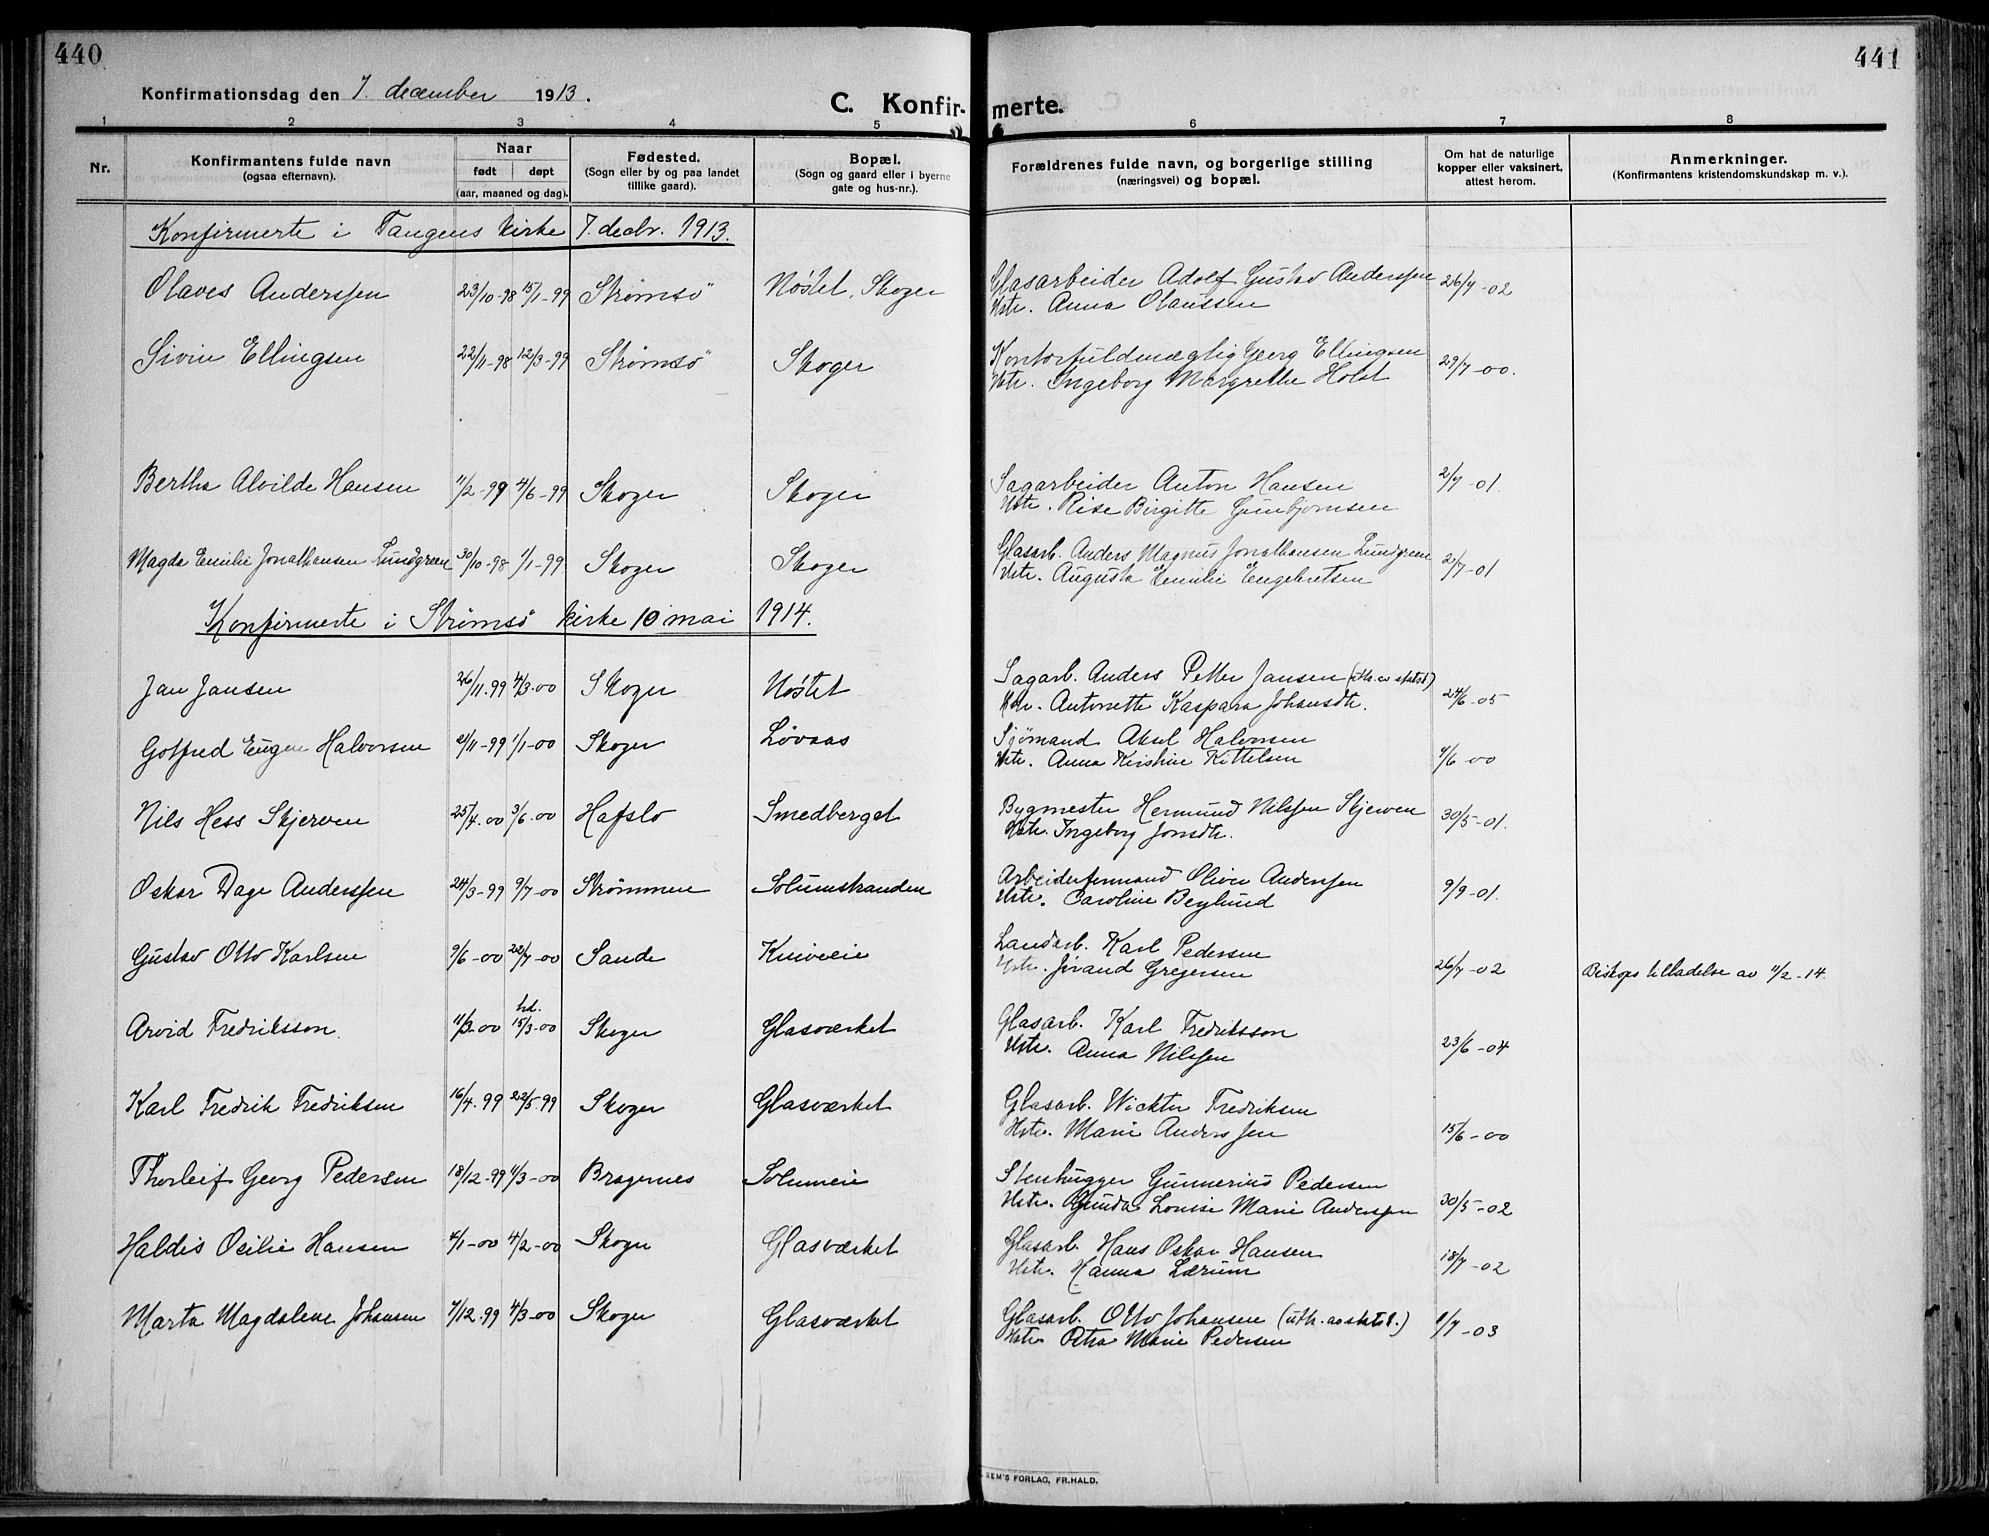 440
441
Konfirmationsdag den 7. december 1913.
C. Konfirmerte.
1 2 3 4 5 6 7 8
Nr.
Konfirmantens fulde navn
(ogsaa efternavn).
Naar
født døpt
(aar, maaned og dag).
Fødested.
(Sogn eller by og paa landet
tillike gaard).
Bopæl.
(Sogn og gaard eller i byerne
gate og hus-nr.).
Forældrenes fulde navn, og borgerlige stilling
(næringsvei) og bopæl.
Om hat de naturlige
kopper eller vaksinert,
attest herom.
Anmerkninger.
(Konfirmantens kristendomskundskap m. v.).
Konfirmerte i Tangens kirke 7. decbr. 1913.
Olaves Anderssen 23/10-98 15/1-99 Strømsø Nøstet, Skoger Glasarbeider Adolf Gustav Anderssen 26/7-02
Hstr. Anna Olaussen
Sivin Ellingsen 22/11-98 12/3-99 Strømsø Skoger Kontorfuldmægtig Georg Ellingsen 29/7-00.
Hstr. Ingeborg Margrethe Holst
Bertha Alvilde Hansen 11/2-99 4/6-99 Skoger Skoger Sagarbeider Anton Hansen 2/7-01.
Hstr. Rise Birgitte Gunbjørnsen
Magda Emilie Jonathansen Lundgreen 30/10-98 1/1-99 Skoger Skoger Glasarb. Anders Magnus Jonathansen Lundgreen 2/7-01
Hstr. Augusta Emilie Engebretsen
Konfirmerte i Strømsø kirke 10 mai 1914.
Jan Jansen 26/11.99 4/3-00 Skoger Nøstet Sagarb. Anders Petter Jansen (uth. av statsk.) 24/6-05
Hstr. Antonette Kaspara Johansdtr.
Gotfred Eugen Halvorsen 21/11-99 1/1-00 Skoger Løvaas Sjømand Aksel Halvorsen 4/6-00
Hstr. Anna Kirstine Kittelsen
Nils Hess Skjerven 25/4.00 3/6.00 Hafslo Smedberget Bygmester Hermund Nilssen Skjerven 30/5-01.
Hstr. Ingeborg Jonsdtr.
Oskar Dage Anderssen 24/3-99 9/7-00 Strømmen Solumstranden Arbeidsformand Oliver Anderssen 9/9-01.
Hstr. Caroline Beylund
Gustav Otto Karlsen 9/6-00 22/7-00 Sande Kniveeie Landarb. Karl Pedersen 26/7-02 Biskops tilladelse av 11/2-14.
Hstr. Jørand Gregersen
Arvid Fredriksson 11/3-00 hd. 15/3-00 Skoger Glasværket Glasarb. Karl Fredriksson 23/6-04
Hstr. Anna Nilssen
Karl Fredrik Fredriksen 16/4.99 22/5.99 Skoger Glasværket Glasarb. Wickter Fredriksen 15/6-00
Hstr. Marie Anderssen
Thorleif Georg Pedersen 18/12-99 4/3-00 Bragernes Solumeie Stenhugger Gunnerius Pedersen 30/5-02
Hstr. Gunda Lovise Marie Anderssen
Haldis Ocilie Hansen 4/1-00 4/2-00 Skoger Glasværket Glasarb. Hans Oskar Hansen 18/7-02
Hstr. Hanna Lærum
Marta Magdalene Johansen 7/12.99 4/3-00 Skoger Glasværket Glasarb. Otto Johansen (uth. av statsk.) 1/7-03
Hstr. Petra Marie Pedersen
SEM'S FORLAG, FR.HALD.